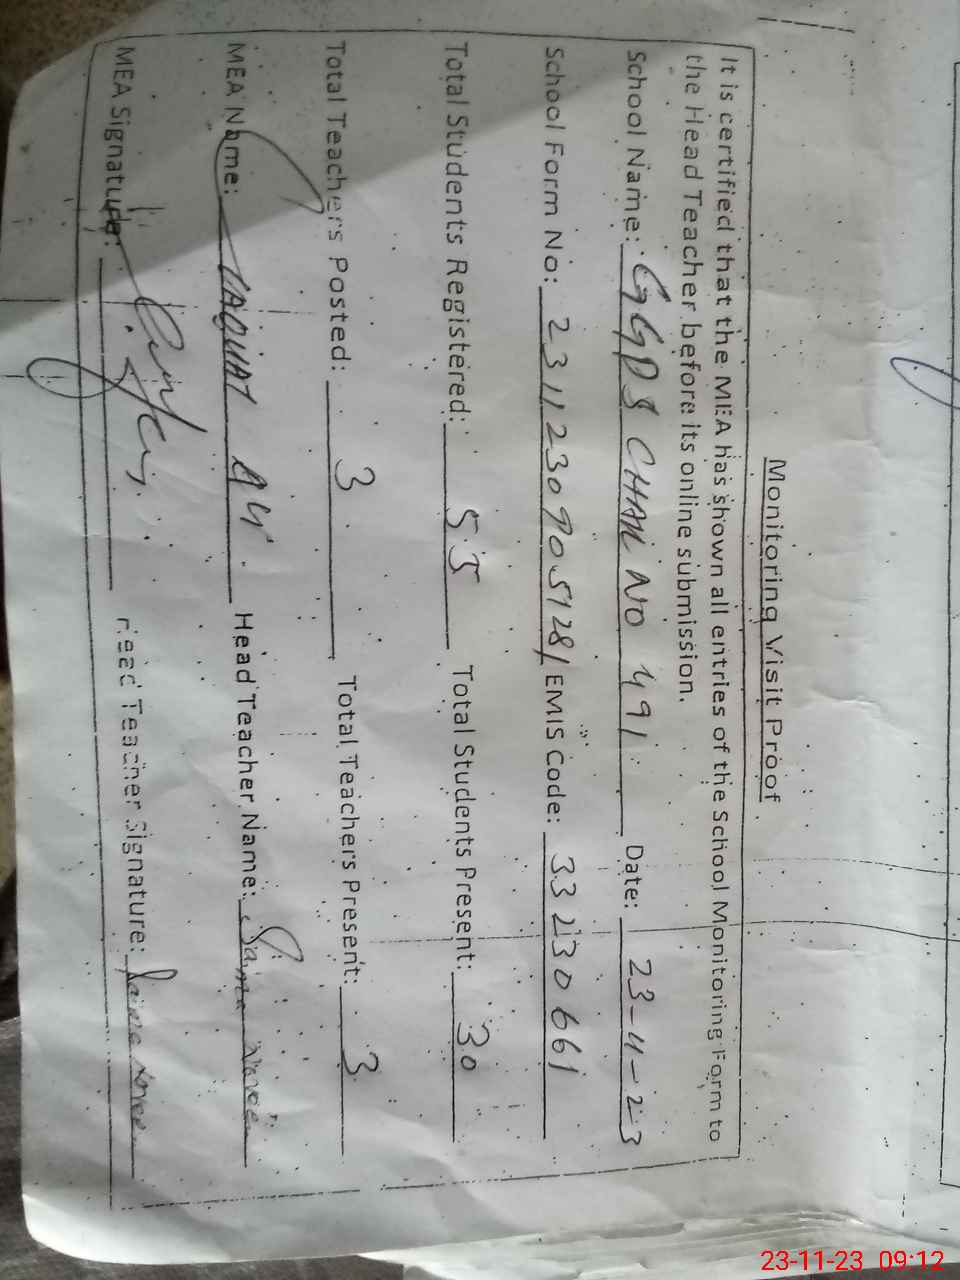 Monitoring Visit Proof
It is certified that the MEA has shown all entries of the School Monitoring Form to
the Head Teacher before its online submission.
School Name: GGPS CHAK NO 491 Date: 23-11-23
School Form No: 23112309051281 EMIS Code: 33230661
Total Students Registered: 55 Total Students Present: 30
Total Teachers Posted: 3 Total Teachers Present: 3
MEA Name: LAQUAT Head Teacher Name: Saima
MEA Signature: Head Teacher Signature: Saima
23-11-23 09:12